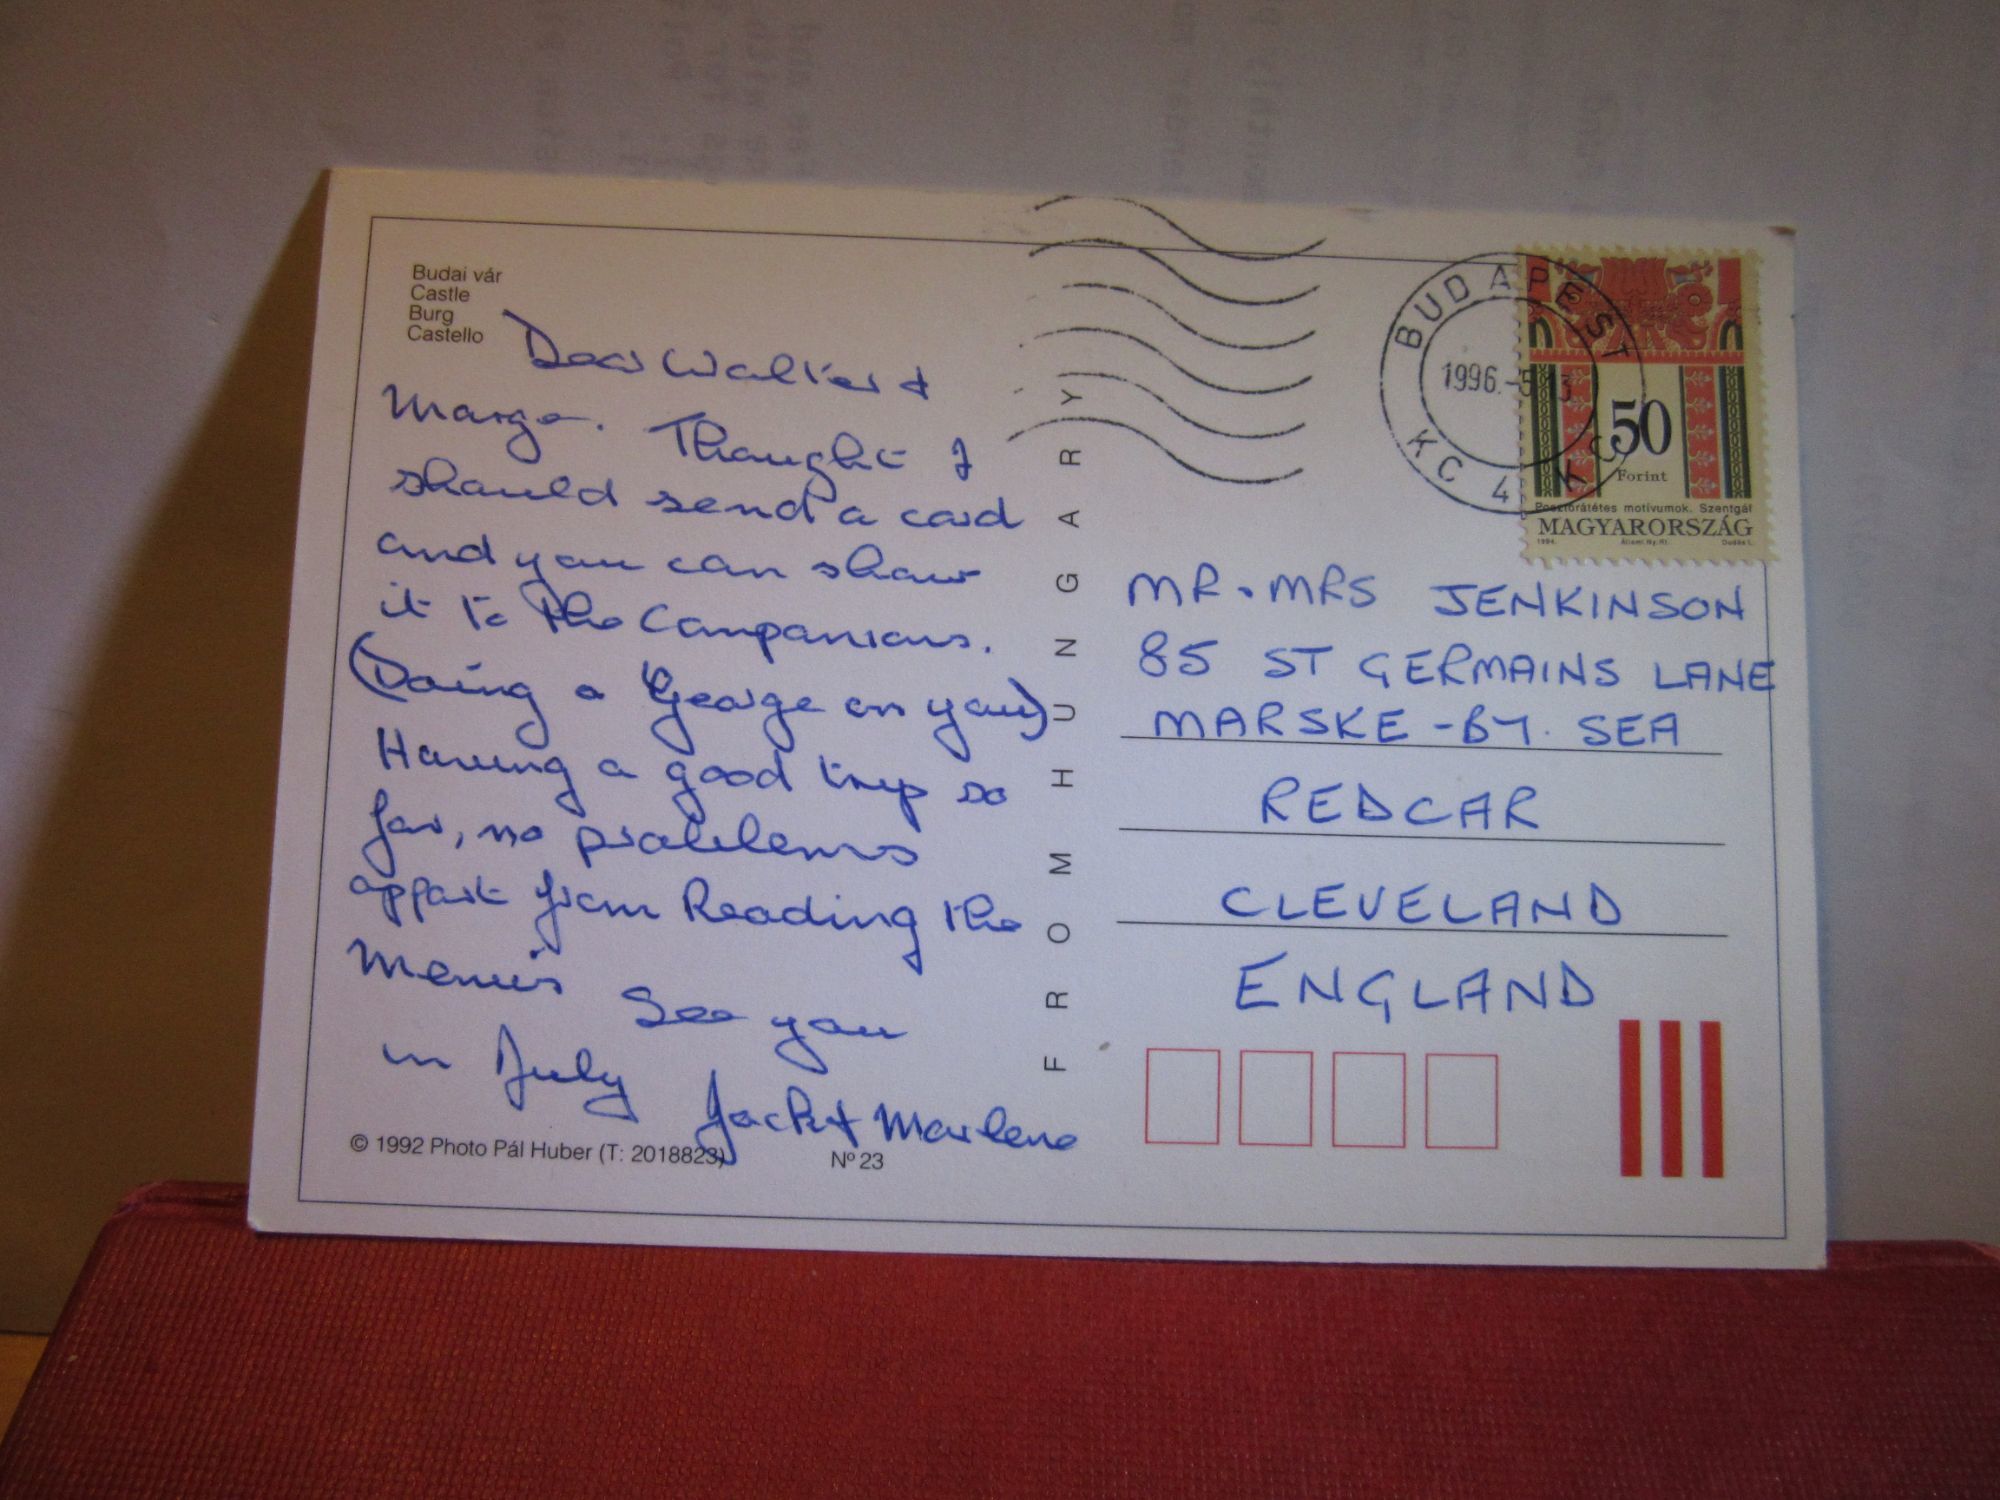 Budai vár
Castle
Burg
Castello
Dear Walter &
Margo. Thought I
should send a card
and you can show
it to the Companions.
(Doing a George on you)
Having a good trip so
far, no problems
appart from Reading the
Menu's See you
in July Jack & Marlene
© 1992 Photo Pál Huber (T: 2018823) Nº 23
FROM HUNGARY
BUDAPEST
1996.-5 13
KC 4 KC
50
Forint
Posztórátétes motívumok. Szentgál
MAGYARORSZÁG
1994. Állami Ny. Rt. Dudás L.
MR. MRS JENKINSON
85 ST GERMAINS LANE
MARSKE-BY. SEA
REDCAR
CLEVELAND
ENGLAND